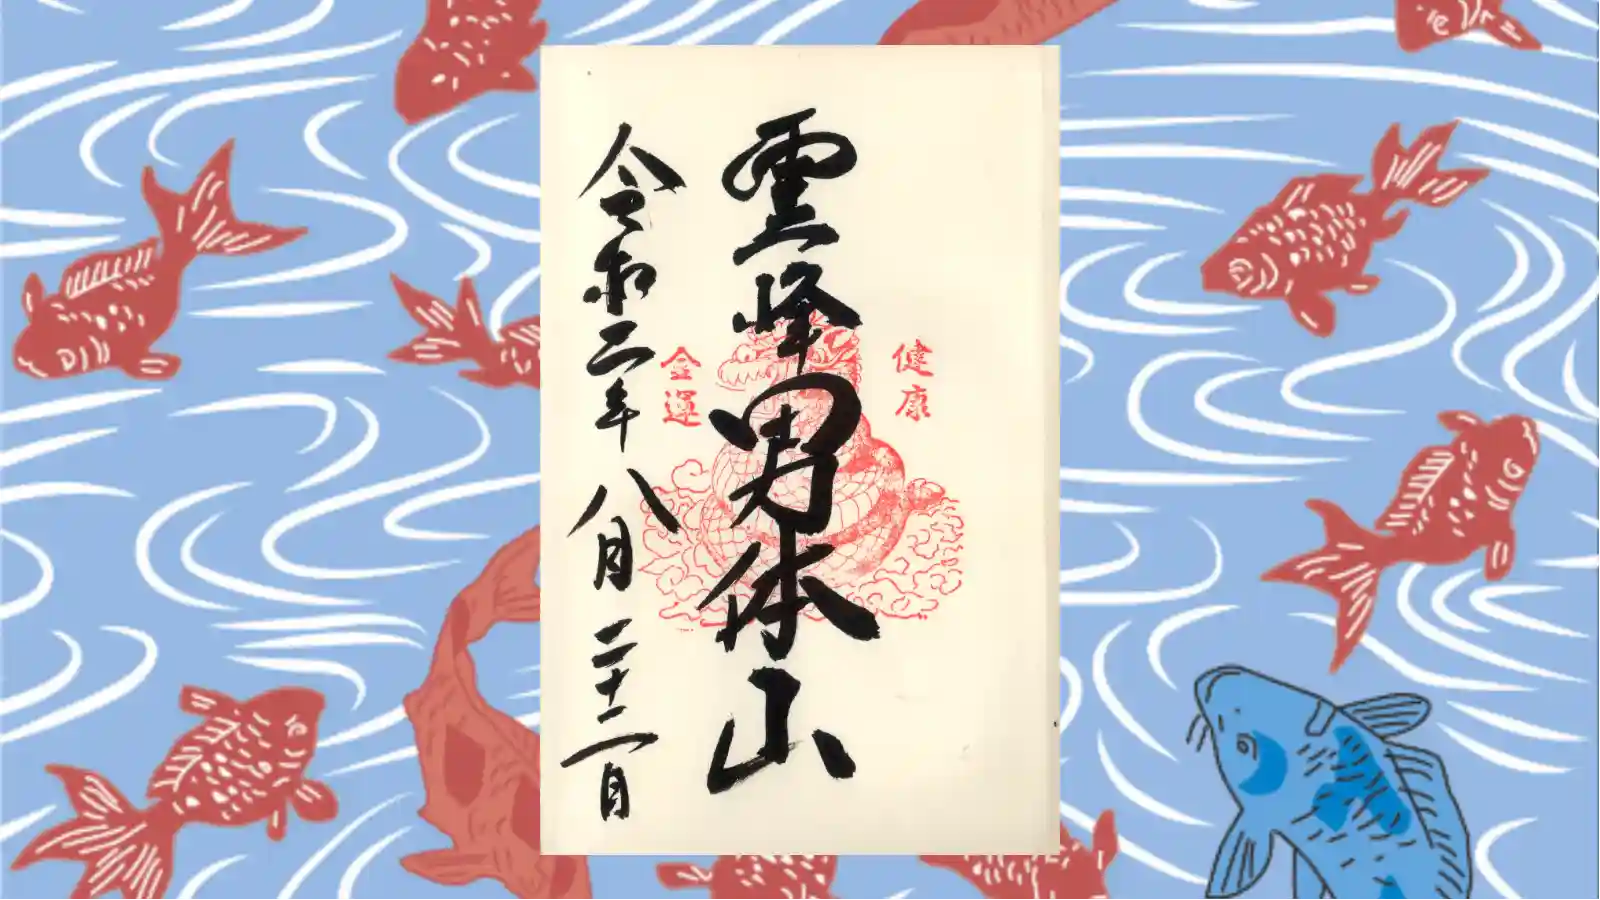 健康
霊峰男体山
金運
令和二年八月二十二日